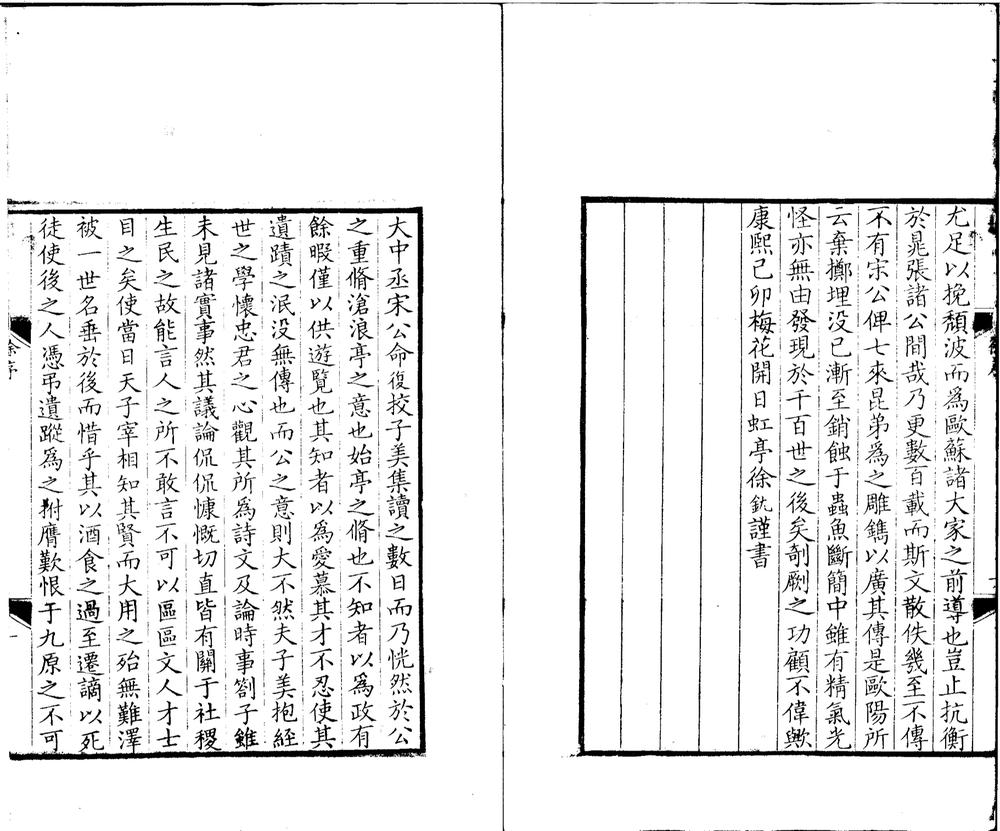 尤足以挽頹波而爲歐蘇諸大家之前導也豈止抗衡
於晁張諸公間哉乃更數百載而斯文散佚幾至不傳
不有宋公俾七來昆弟爲之雕鐫以廣其傳是歐陽所
云棄擲埋没已漸至銷蝕于蟲魚斷簡中雖有精氣光
怪亦無由發現於千百世之後矣剞劂之功顧不偉歟
康熙己卯梅花開日虹亭徐釚謹書
大中丞宋公命復挍子美集讀之數日而乃恍然於公
之重脩滄浪亭之意也始亭之脩也不知者以爲政有
餘暇僅以供遊覽也其知者以爲愛慕其才不忍使其
遺蹟之泯没無傳也而公之意則大不然夫子美抱經
世之學懷忠君之心觀其所爲詩文及論時事劄子雖
未見諸實事然其議論侃侃慷慨切直皆有關于社稷
生民之故能言人之所不敢言不可以區區文人才士
目之矣使當日天子宰相知其賢而大用之殆無難澤
被一世名垂於後而惜乎其以酒食之過至遷謫以死
徒使後之人憑弔遺蹤爲之拊膺歎恨于九原之不可
徐序
一